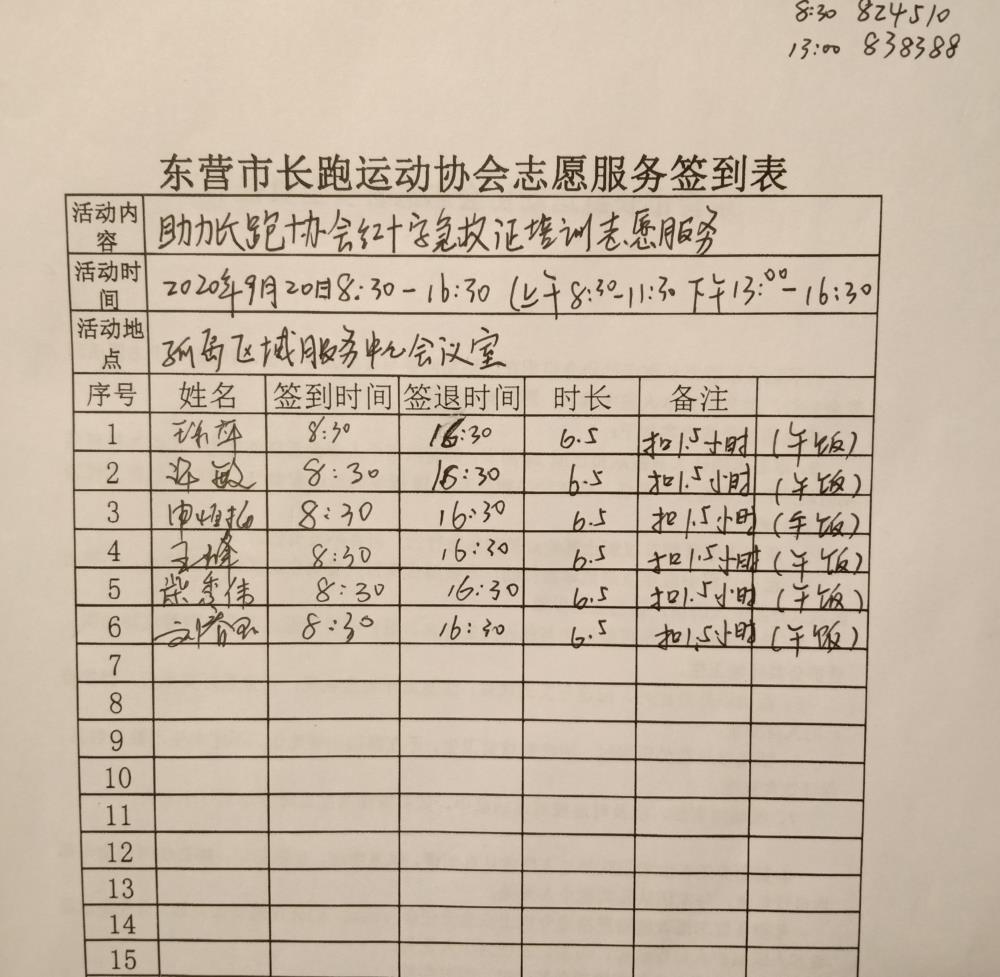 8:30 824510
13:00 838388
东营市长跑运动协会志愿服务签到表
活动内容 助力长跑协会红十字急救证培训志愿服务
活动时间 2020年9月20日8:30-16:30 (上午8:30-11:30 下午13:00-16:30
活动地点 孤岛区域服务中心会议室
序号 姓名 签到时间 签退时间 时长 备注
1 8:30 16:30 6.5 扣1.5小时 (午饭)
2 许敏 8:30 16:30 6.5 扣1.5小时 (午饭)
3 8:30 16:30 6.5 扣1.5小时 (午饭)
4 王峰 8:30 16:30 6.5 扣1.5小时 (午饭)
5 柴秀伟 8:30 16:30 6.5 扣1.5小时 (午饭)
6 8:30 16:30 6.5 扣1.5小时 (午饭)
7
8
9
10
11
12
13
14
15